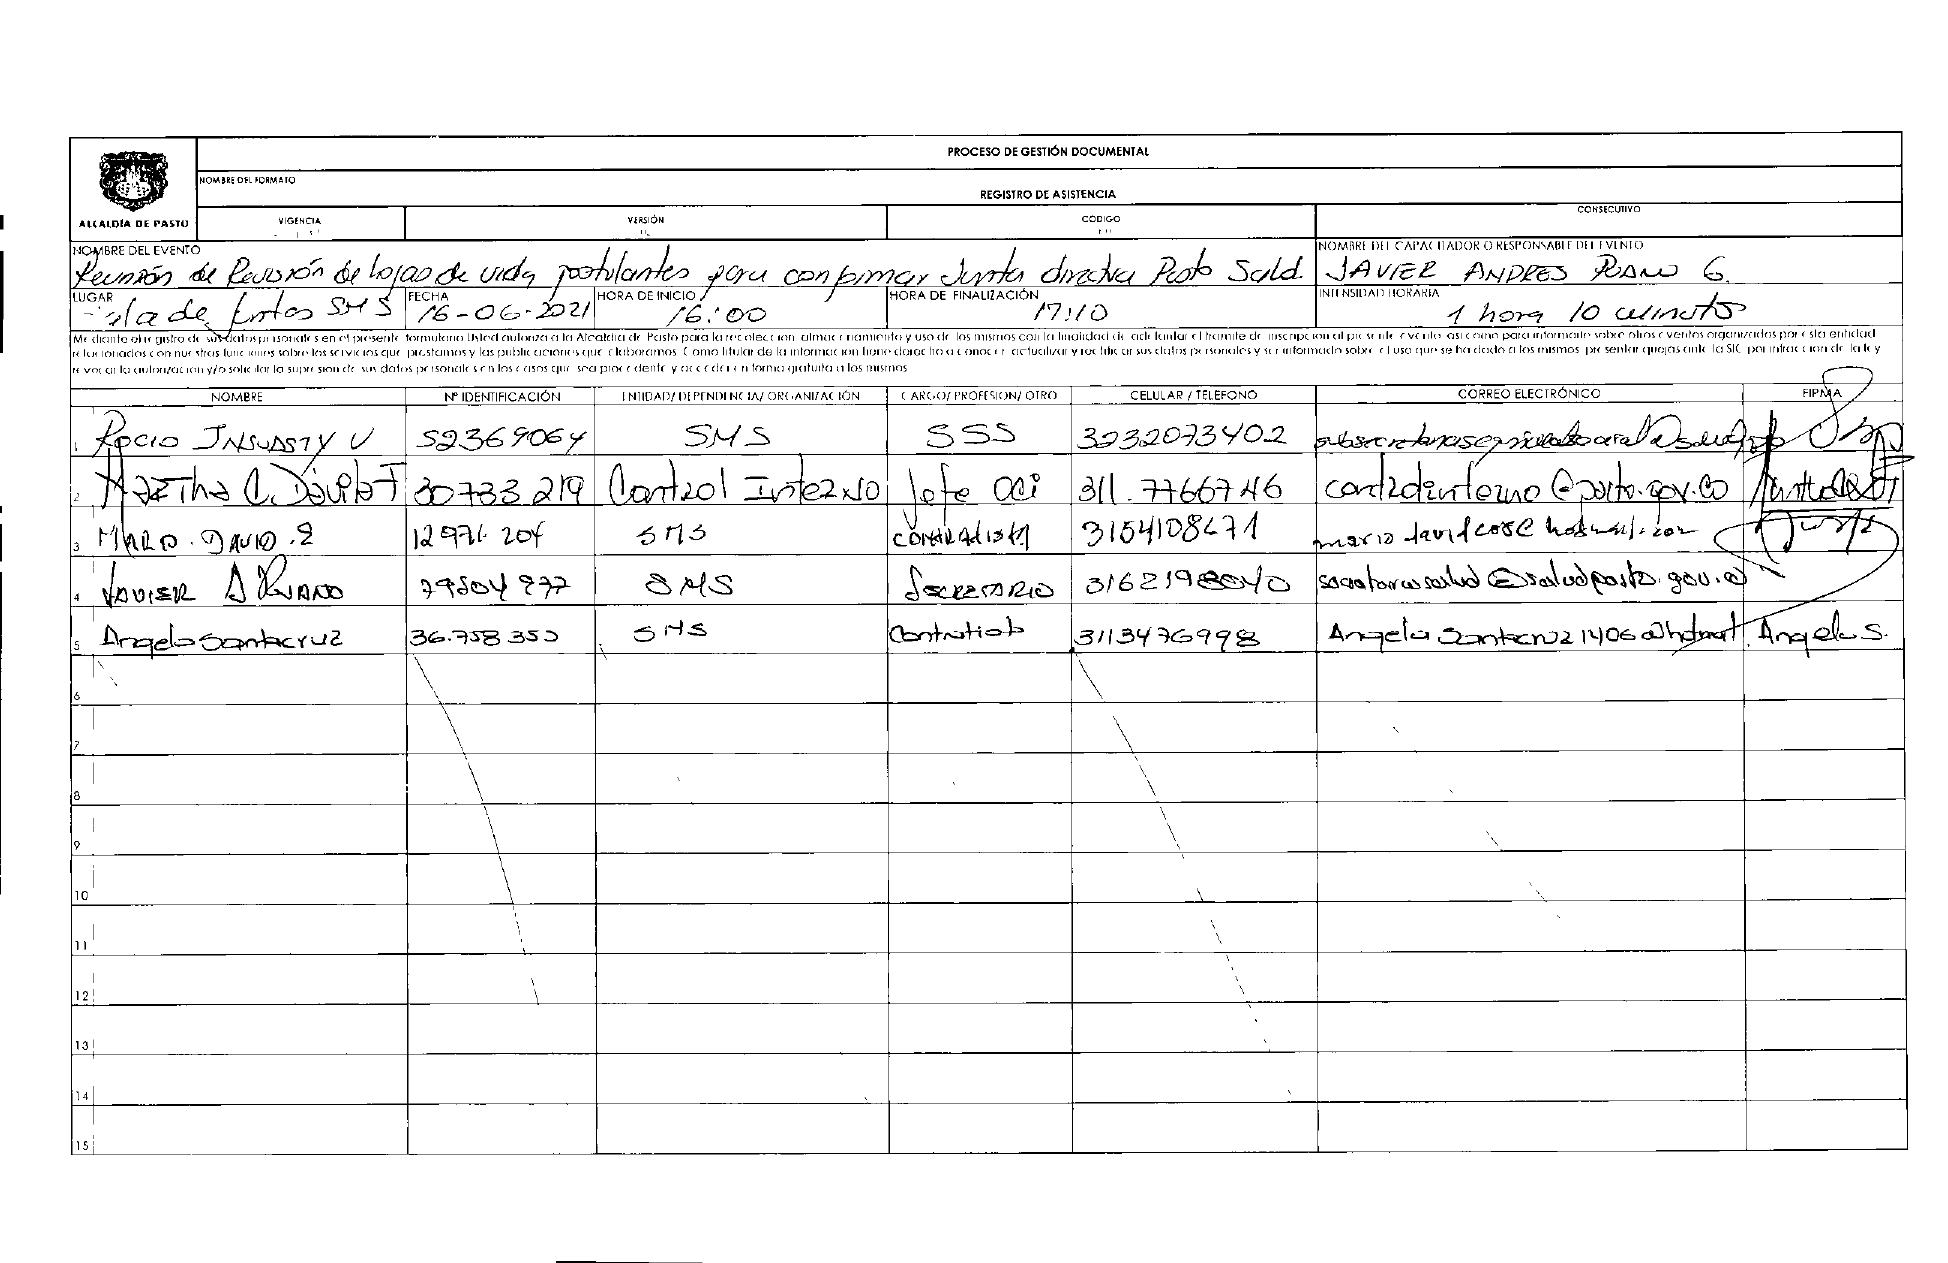 PROCESO DE GESTIÓN DOCUMENTAL
NOMBRE DEL FORMATO
REGISTRO DE ASISTENCIA
ALCALDÍA DE PASTO
VIGENCIA VERSIÓN CÓDIGO CONSECUTIVO
NOMBRE DEL EVENTO NOMBRE DEL CAPACITADOR O RESPONSABLE DEL EVENTO
Reunión de Revisión de hojas de vida postulantes para conformar Junta directiva Pasto Salud JAVIER ANDRES RUANO G.
LUGAR FECHA HORA DE INICIO HORA DE FINALIZACIÓN INTENSIDAD HORARIA
Sala de Juntas SMS 16-06-2021 16:00 17:10 1 hora 10 minutos
Mediante el registro de sus datos personales en el presente formulario Usted autoriza a la Alcaldía de Pasto para la recolección, almacenamiento y uso de los mismos con la finalidad de adelantar el trámite de inscripción al presente evento, así como para informarle sobre otros eventos organizados por esta entidad
relacionados con nuestras funciones sobre los servicios que prestamos y las publicaciones que elaboramos. Como titular de la información tiene derecho a conocer, actualizar y rectificar sus datos personales y ser informado sobre el uso que se ha dado a los mismos, presentar quejas ante la SIC por infracción de la ley
revocar la autorización y/o solicitar la supresión de sus datos personales en los casos que sea procedente y acceder en forma gratuita a los mismos
NOMBRE Nº IDENTIFICACIÓN ENTIDAD/ DEPENDENCIA/ ORGANIZACIÓN CARGO/ PROFESION/ OTRO CELULAR / TELEFONO CORREO ELECTRÓNICO FIRMA
1 Rocio INSUASTY U 52369064 SMS SSS 3232073402
2 MARTHA C. Dávila F 30733219 Control Interno Jefe OCI 311.7766746 controlinterno@pasto.gov.co
3 MARIO. DAVID. 12976 204 SMS CONTRATISTA 3154108671
4 JAVIER A RUANO 79504877 SMS SECRETARIO 3162198040 @saludpasto.gov.co
5 Angela Santacruz 36.758353 SMS Contratista 3113476998 Angela Santacruz1406@hotmail. Angela S.
6
7
8
9
10
11
12
13
14
15